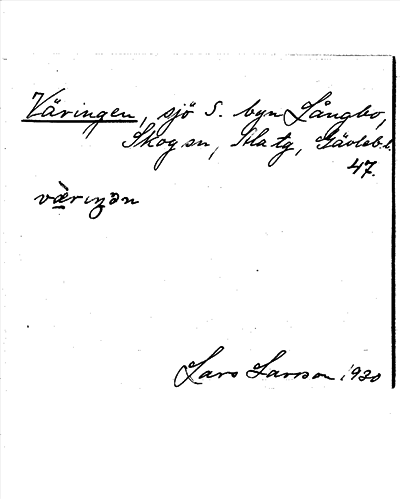 Väringen, sjö S. byn Långbo,
Skog sn, Ala tg, Gävleb. l.
47.
væ̀riŋən
Lars Larsson 1930